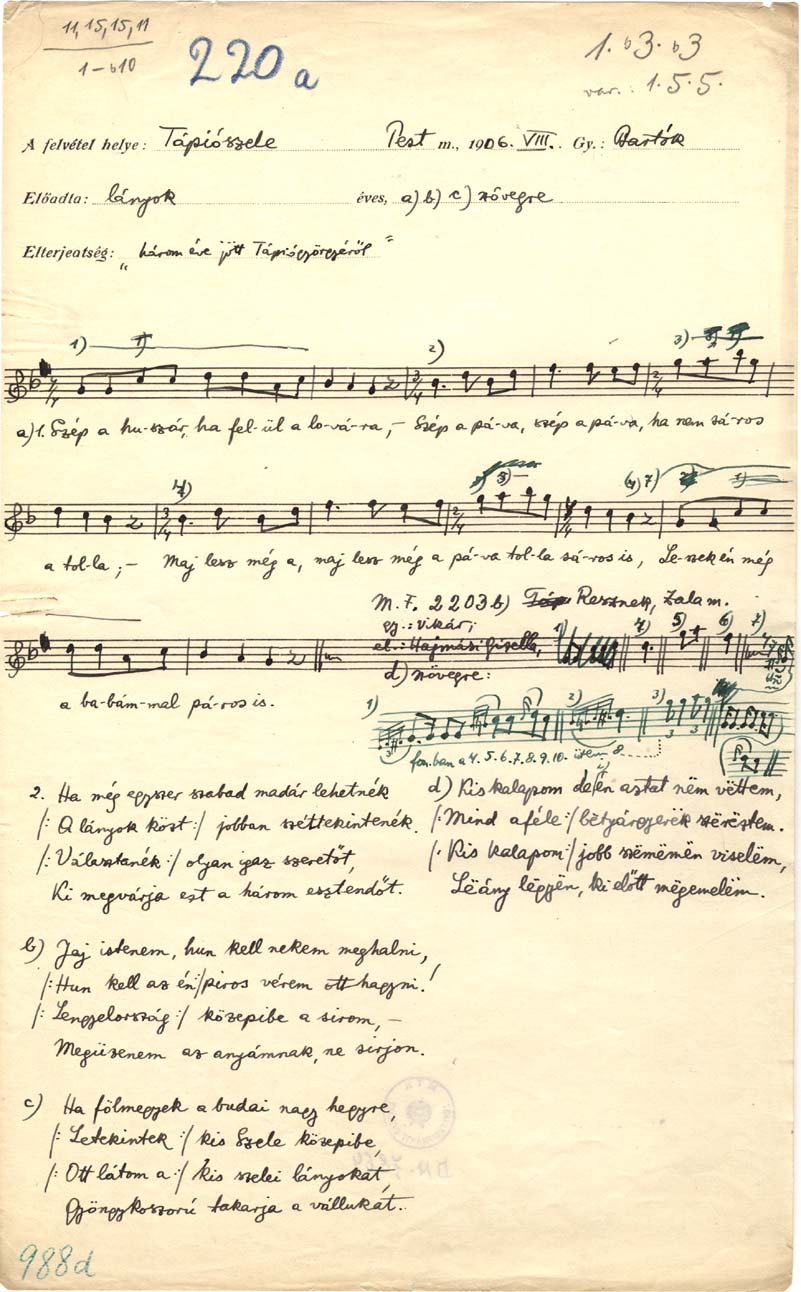 11, 15, 15, 11
1–♭10
220a
1. ♭3. ♭3
var.: 1. 5. 5.
A felvétel helye: Tápiószele Pest m., 1906. VIII. Gy.: Bartók
Előadta: lányok éves, a) b) c) szövegre
Elterjeatség: „három éve jött Tápiógyörgyéről"
1) 2) 3)
a) 1. Szép a hu-szár, ha fel-ül a lo-vá-ra, – Szép a pá-va, szép a pá-va, ha nem sá-ros
4) 5) 6) 7)
a tol-la; – Maj lesz még a, maj lesz még a pá-va tol-la sá-ros is, Le-szek én még
M. F. 2203 b) Resznek, Zala m.
gy.: Vikár;
el.: Hajmási Gizella,
d) szövegre:
1) 4) 5) 6) 7)
a ba-bám-mal pá-ros is.
1) 2) 3)
fon.ban a 4. 5. 6. 7. 8. 9. 10.
2. Ha még egyszer szabad madár lehetnék
/: A lányok közt :/ jobban széttekintenék.
/: Választanék :/ olyan igaz szeretőt,
Ki megvárja ezt a három esztendőt.
d) Kis kalapom aztat nëm vëttem,
/: Mind aféle :/ bëtyárgyerëk szërëztem.
/: Kis kalapom :/ jobb szëmëmën viselëm,
Lëány lépjën, ki előtt mëgemelëm.
b) Jaj istenem, hun kell nekem meghalni,
/: Hun kell az én :/ piros vérem ott hagyni!
/: Lengyelország :/ közepibe a sirom, –
Megüzenem az anyámnak, ne sirjon.
c) Ha fölmegyek a budai nagy hegyre,
/: Letekintek :/ kis Szele közepibe,
/: Ott látom a :/ kis szelei lányokat,
Gyöngykoszorú takarja a vállukat.
988d